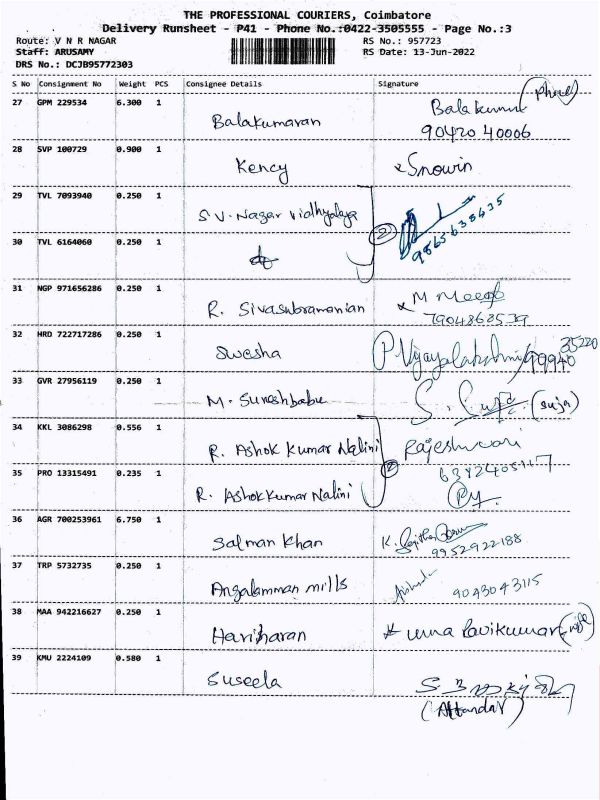 THE PROFESSIONAL COURIERS, Coimbatore
Delivery Runsheet - P41 - Phone No.:0422-3505555 - Page No.:3
Route: V N R NAGAR RS No.: 957723
Staff: ARUSAMY RS Date: 13-Jun-2022
DRS No.: DCJB95772303
S No Consignment No Weight PCS Consignee Details Signature
27 GPM 229534 6.300 1 Balakumaran Balakumar (phone)
90420 40006
28 SVP 100729 0.900 1 Kency Snowin
29 TVL 7093940 0.250 1 S.V. Nagar Vidhyalaya
2 9865635635
30 TVL 6164060 0.250 1
31 NGP 971656286 0.250 1 R. Sivasubramanian M
7904862539
32 HRD 722717286 0.250 1 Swesha P. Vijayalakshmi 99940 35220
33 GVR 27956119 0.250 1 M. Sureshbabu S. (suja)
34 KKL 3086298 0.556 1 R. Ashok Kumar Nalini Rajeshwari
2
35 PRO 13315491 0.235 1 R. Ashok Kumar Nalini
36 AGR 700253961 6.750 1 Salman Khan K.
9952922188
37 TRP 5732735 0.250 1 Angalamman mills 9043043115
38 MAA 942216627 0.250 1 Hariharan uma Ravikumar (wife)
39 KMU 2224109 0.580 1 Suseela
(Attandar)